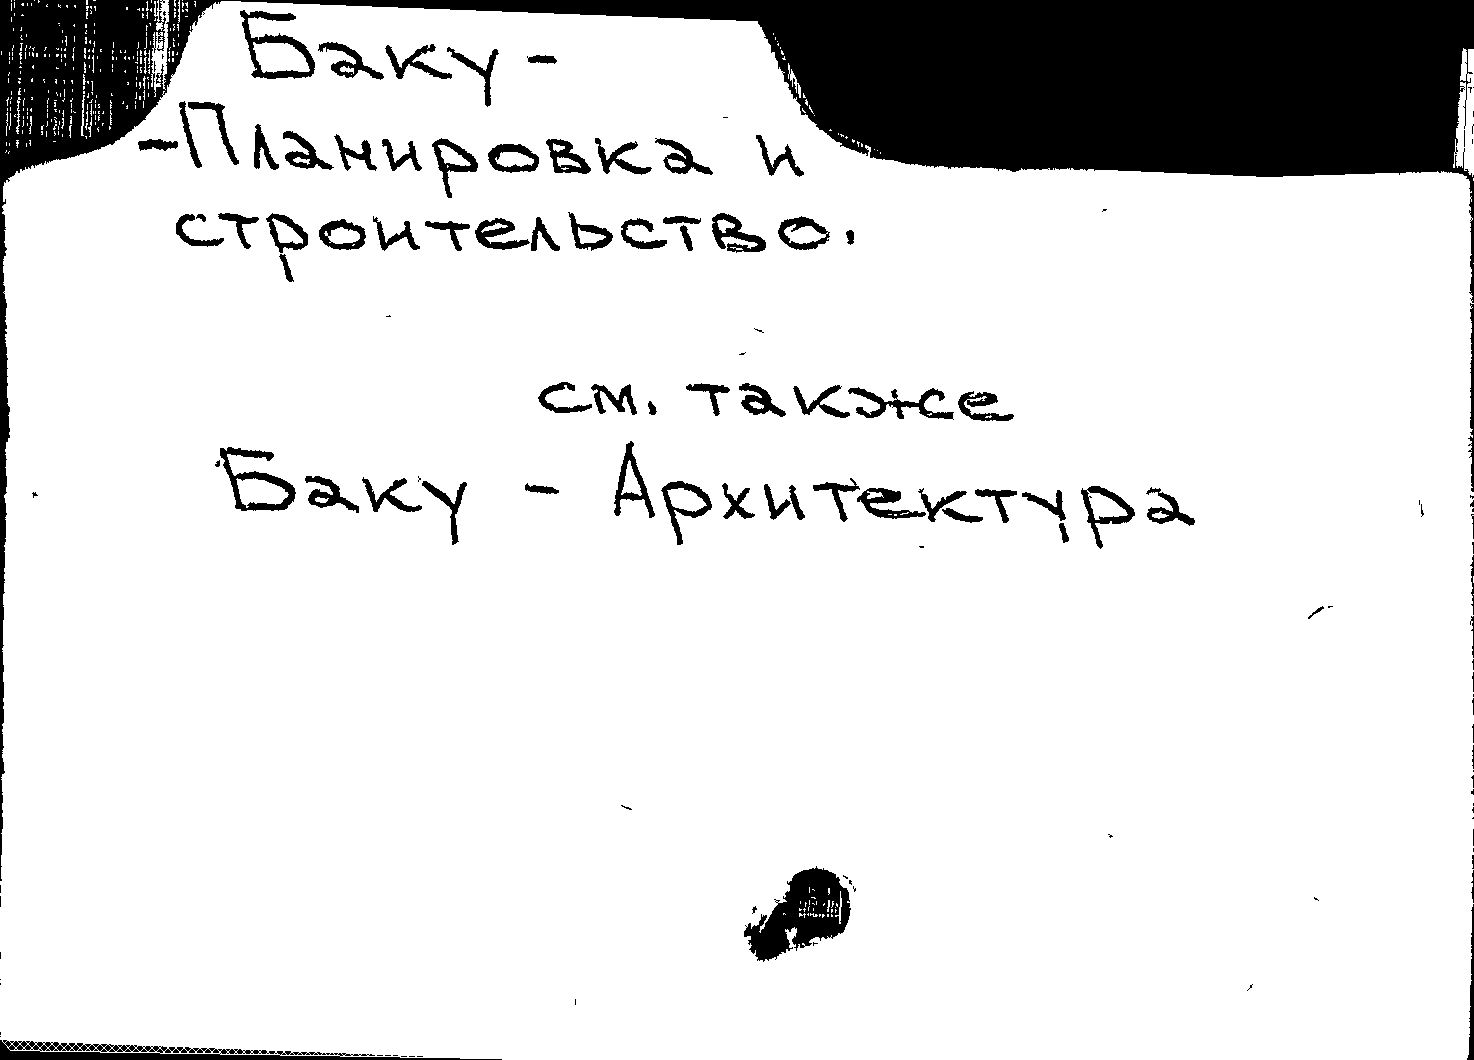 Баку -
-Планировка и
строительство.
см. также
Баку - Архитектура